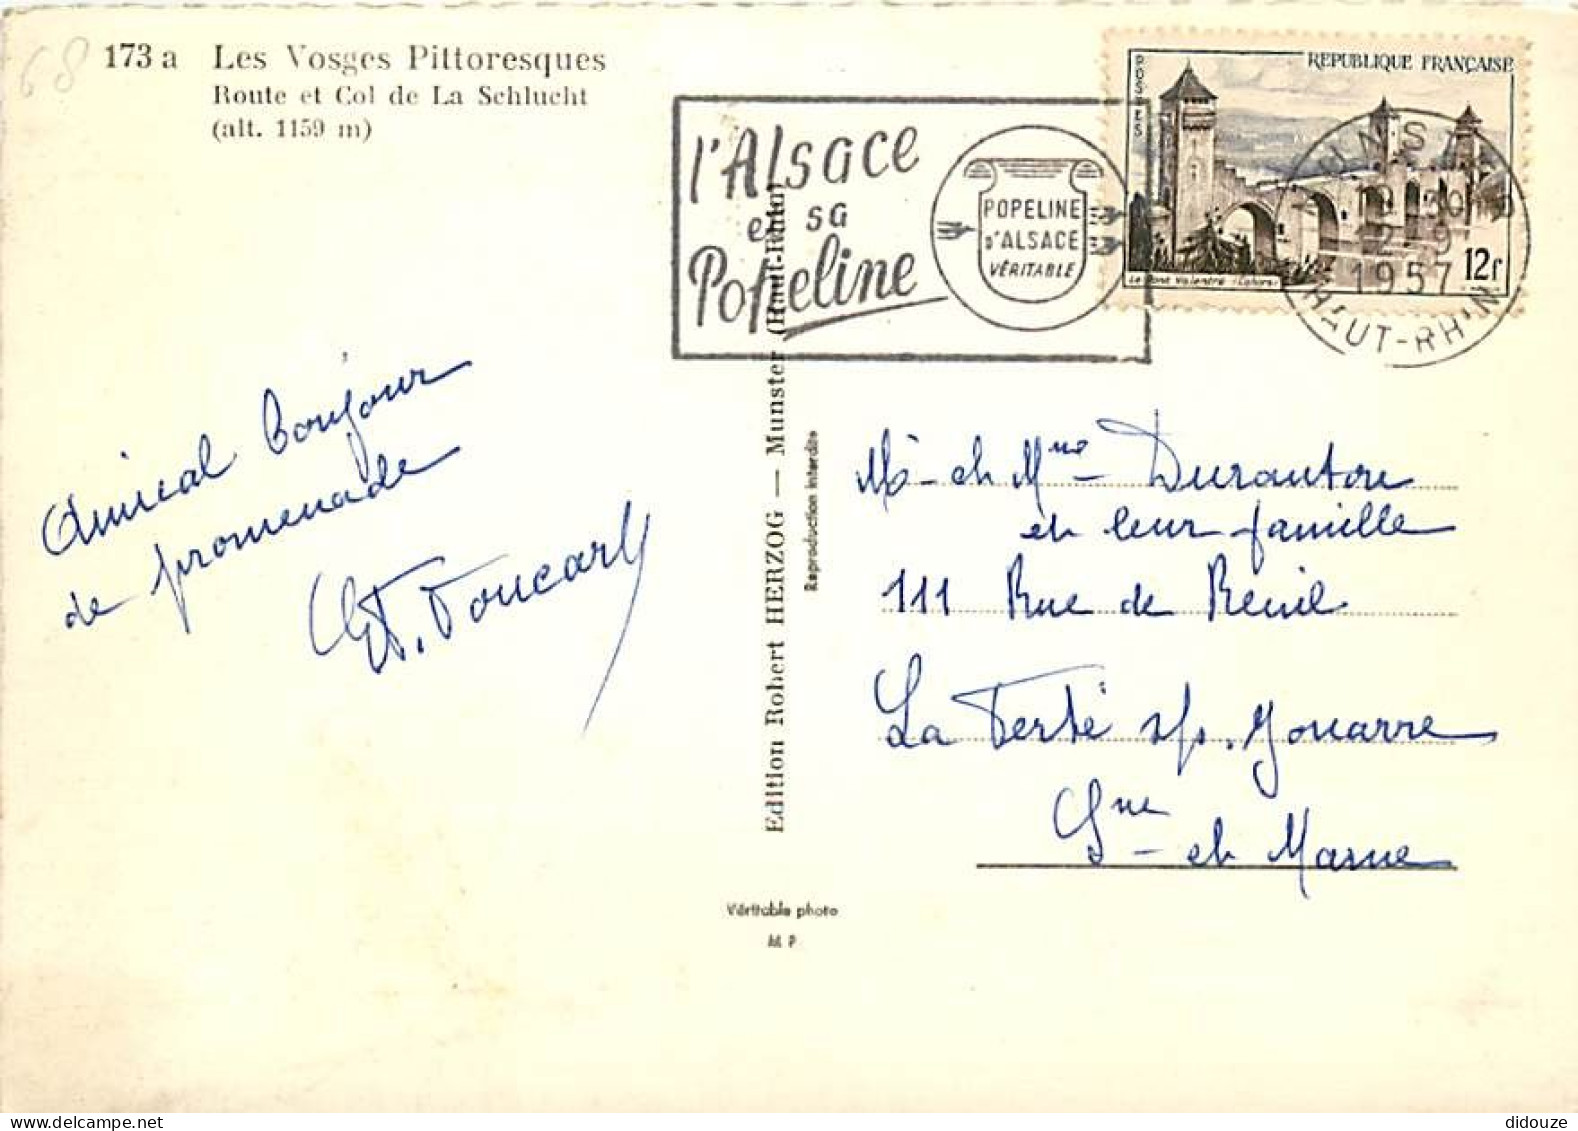 68
173 a Les Vosges Pittoresques
Route et Col de La Schlucht
(alt. 1159 m)
l'Alsace
et sa
Popeline
POPELINE
D'ALSACE
VÉRITABLE
POSTES
REPUBLIQUE FRANÇAISE
Le Pont Valentré (Cahors)
12f
MUNSTER
2-9
1957
HAUT-RHIN
Amical bonjour
de promenade
Edition Robert HERZOG — Munster (Haut-Rhin)
Reproduction interdite
Mr et Mme Duranton
et leur famille
111 Rue de Reuil
La Ferté s/s. Jouarre
Sne et Marne
Véritable photo
M P
didouze